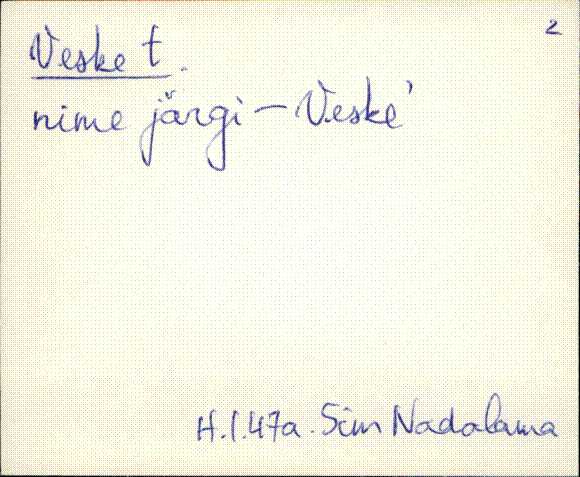 2
Veske t.
nime järgi – Veske'
H.I.47a. Sim Nadalama